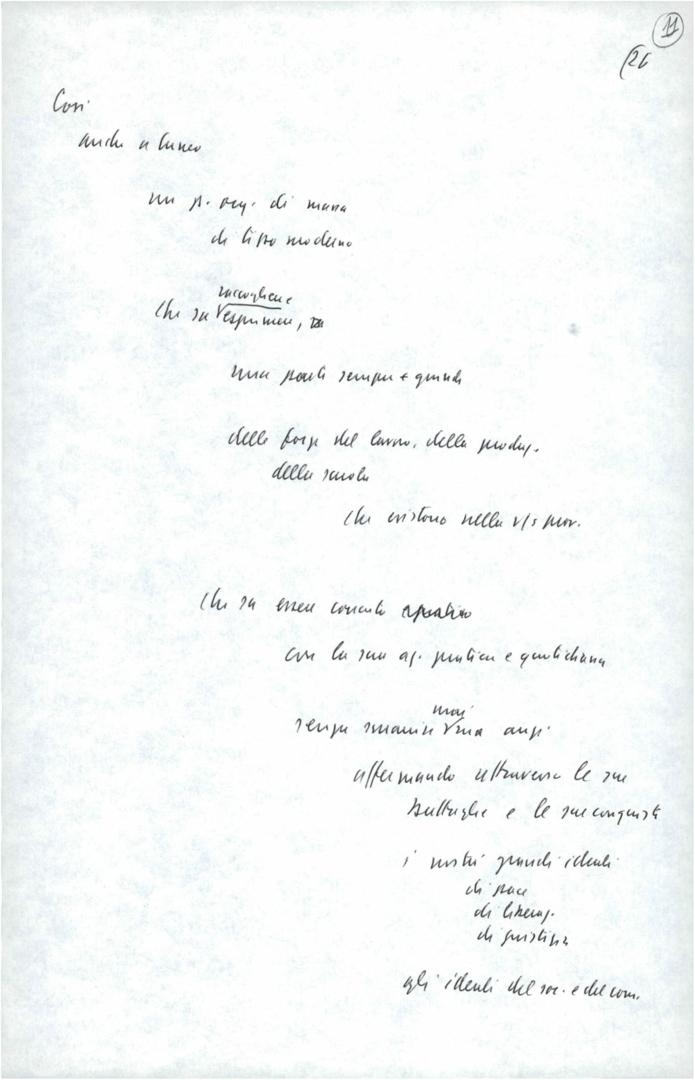 11
(26
Così
anche a Cuneo
un p. org. di massa
di tipo moderno
raccogliere
che sa esprimere,
una parte sempre + grande
delle forze del lavoro, della produz.
della scuola
che esistono nella v/s prov.
che sa essere concreto operativo
con la sua az. pratica e quotidiana
senza smarrire ma anzi
mai
affermando attraverso le sue
battaglie e le sue conquiste
i nostri grandi ideali
di pace
di libertà.
di giustizia
gli ideali del soc. e del com.